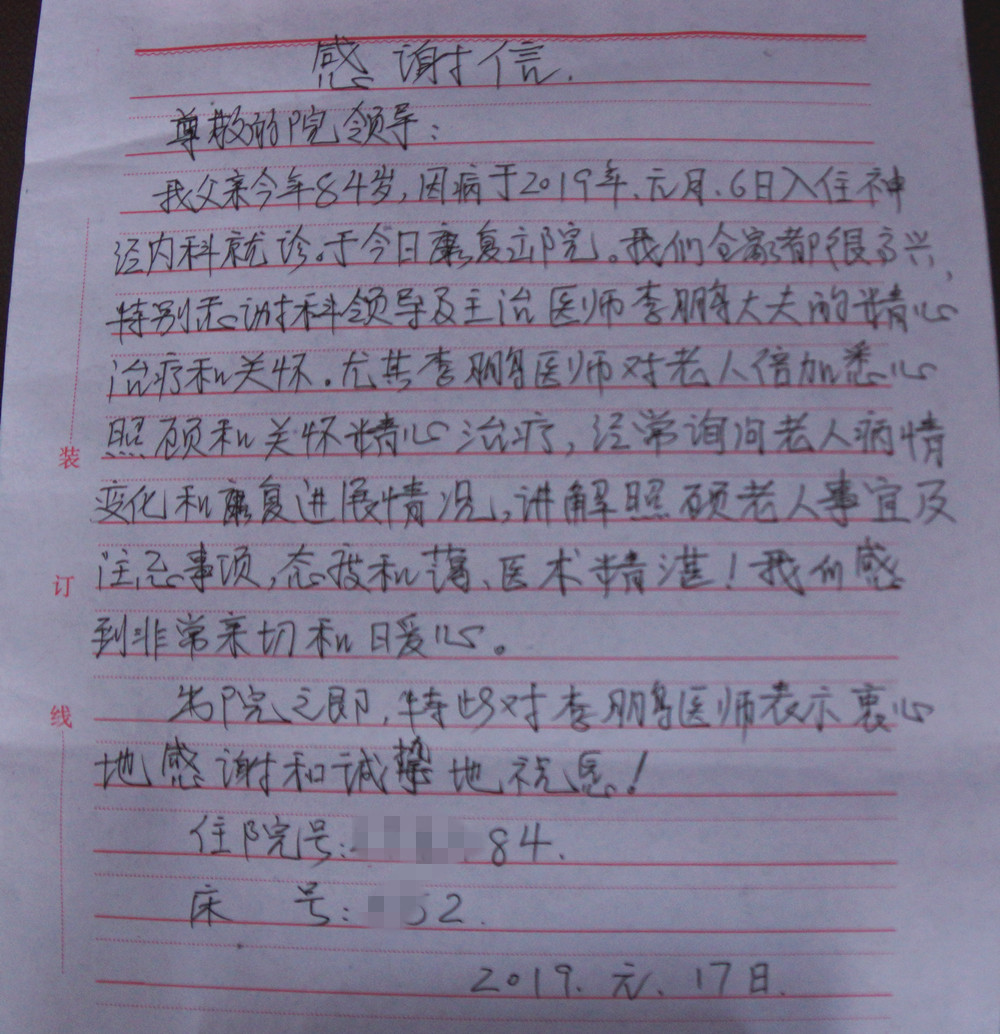 感谢信.
尊敬的院领导:
我父亲今年84岁,因病于2019年、元月、6日入住神
经内科就诊。于今日康复出院。我们全家都很高兴,
特别感谢科领导及主治医师李鹏大夫的精心
治疗和关怀。尤其李鹏医师对老人倍加悉心
照顾和关怀精心治疗,经常询问老人病情
变化和康复进展情况,讲解照顾老人事宜及
注意事项,态度和蔼、医术精湛!我们感
到非常亲切和暖心。
出院之即,特此对李鹏医师表示衷心
地感谢和诚挚地祝愿!
住院号: 84.
床 号: 52.
2019. 元. 17日.
装
订
线